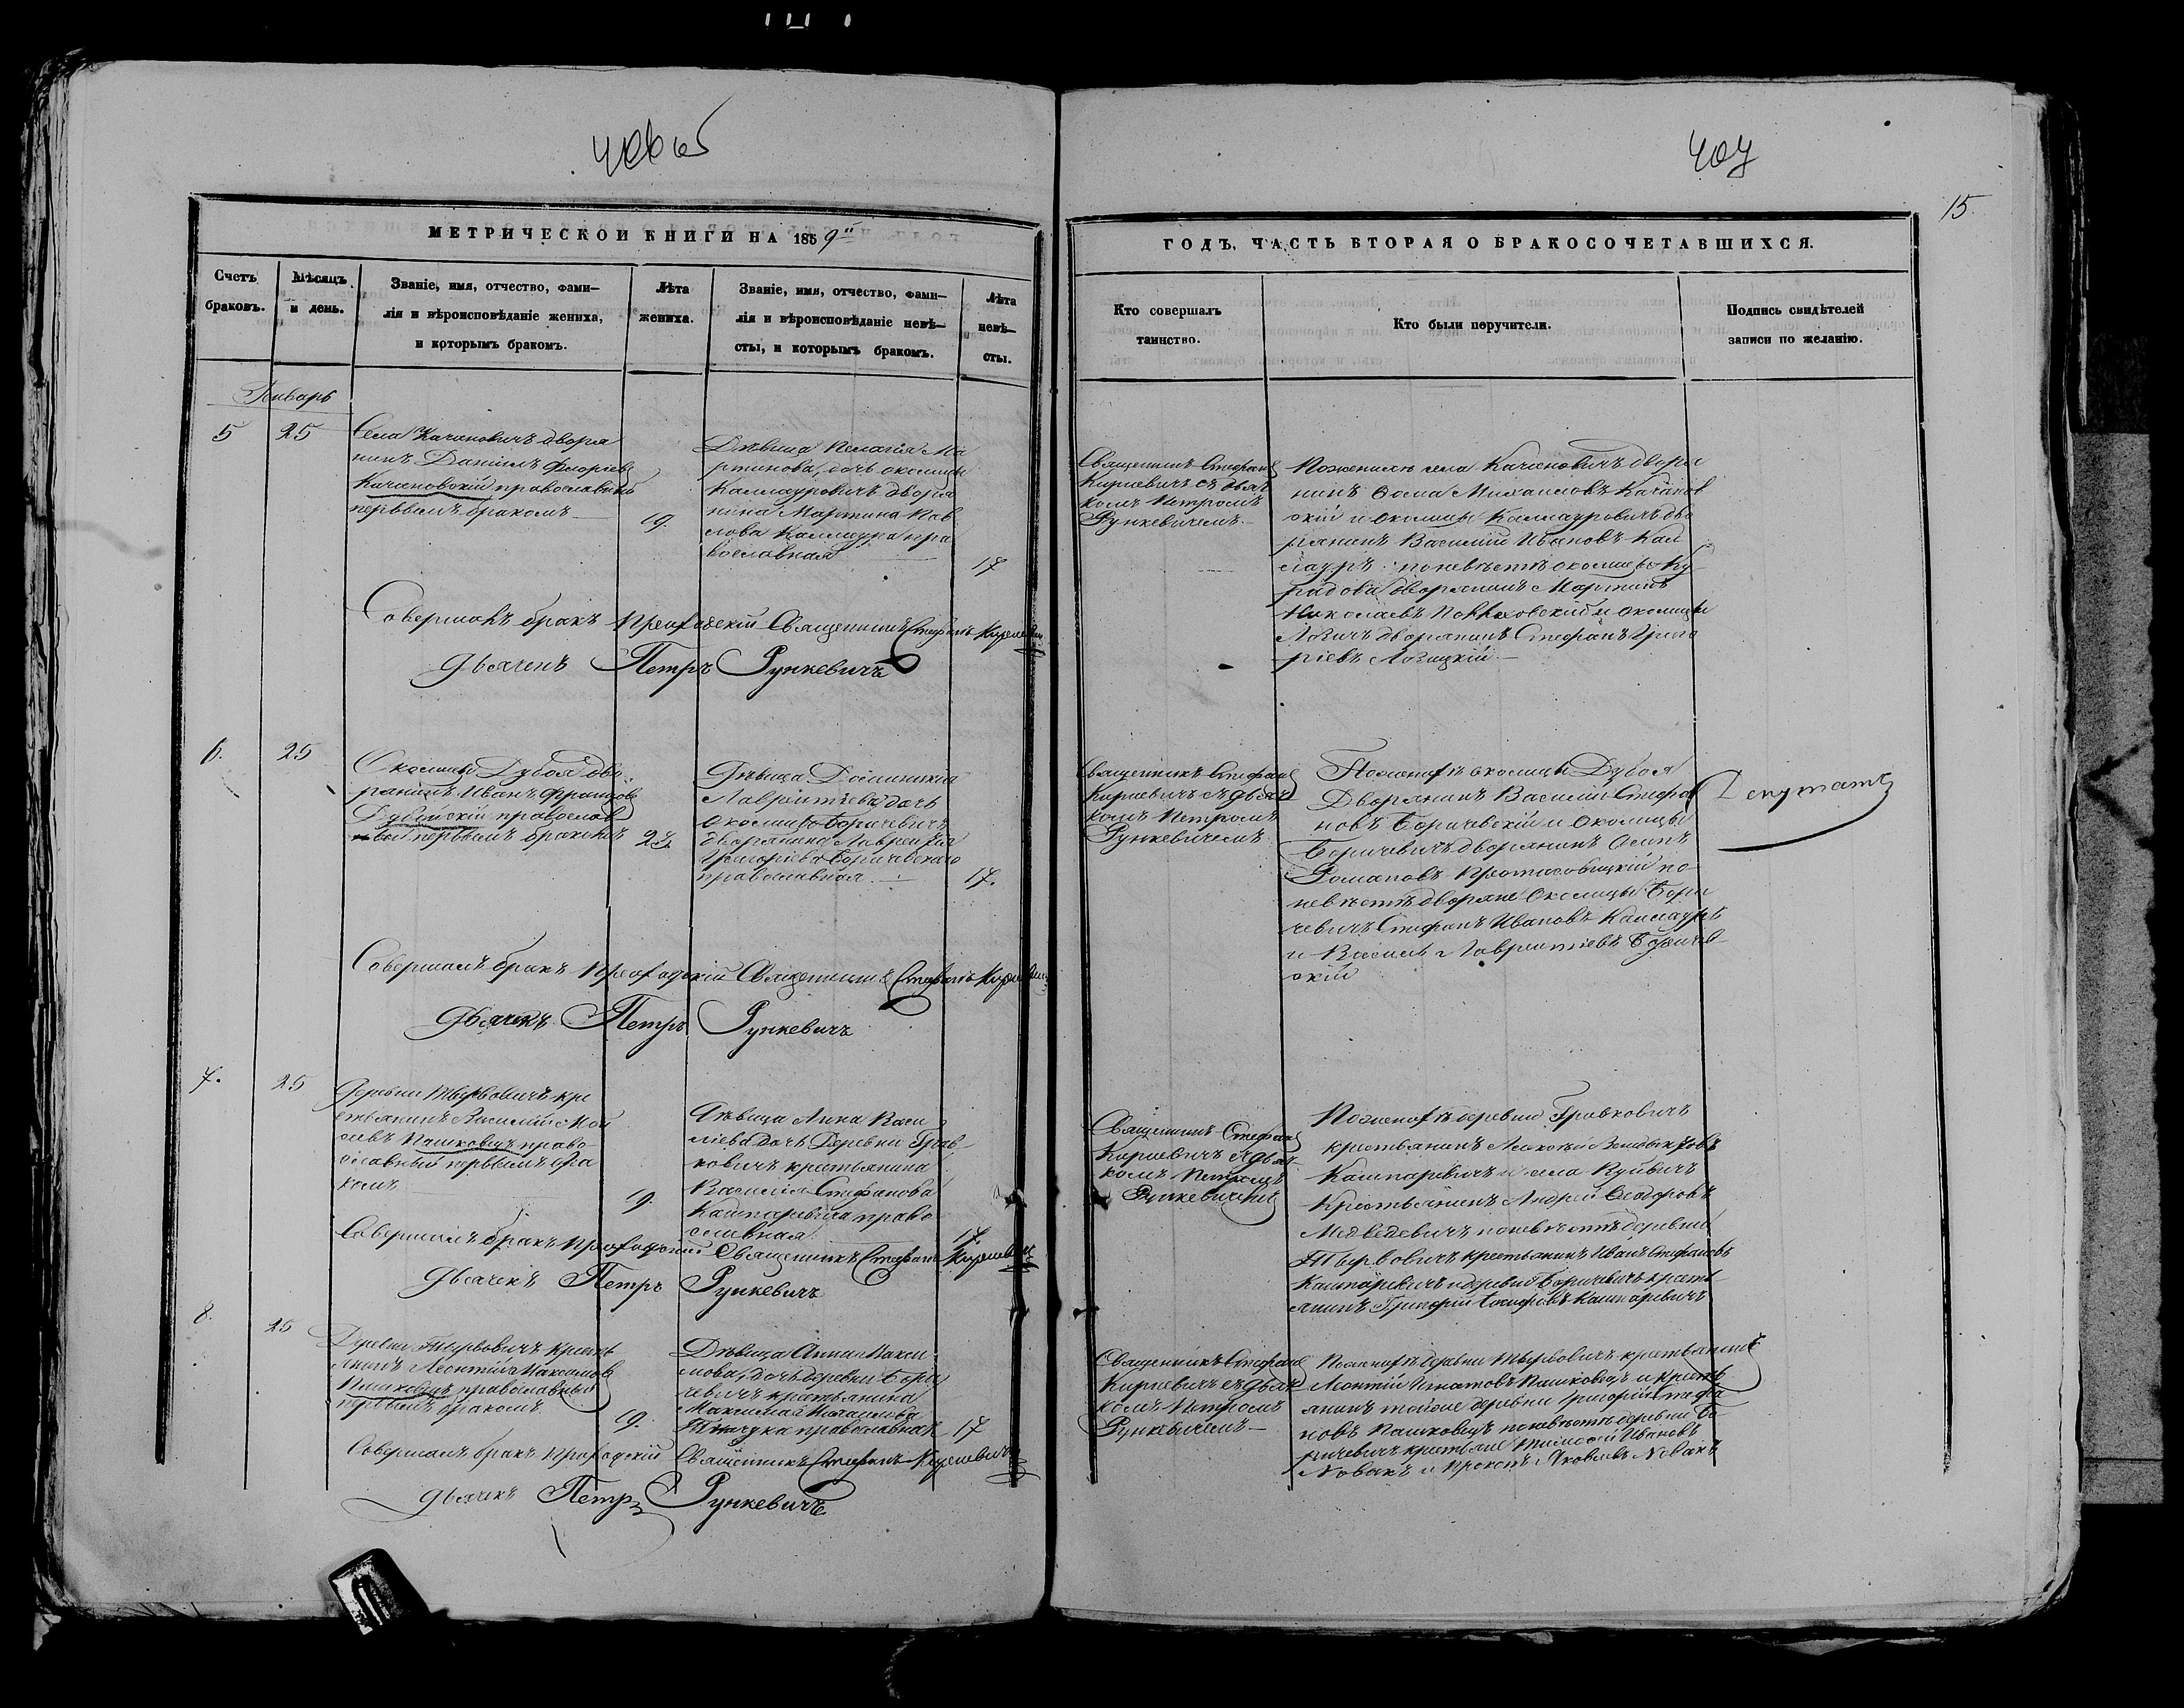 406 об
407
15.
МЕТРИЧЕСКОЙ КНИГИ НА 1859й
ГОДЪ, ЧАСТЬ ВТОРАЯ О БРАКОСОЧЕТАВШИХСЯ.
Счетъ
браковъ.
Мѣсяцъ
и день.
Званіе, имя, отчество, фами-
лія и вѣроисповѣданіе жениха,
и которымъ бракомъ.
Лѣта
жениха.
Званіе, имя, отчество, фами-
лія и вѣроисповѣданіе невѣ-
сты, и которымъ бракомъ.
Лѣта
невѣ-
сты.
Кто совершалъ
таинство.
Кто были поручители.
Подпись свидѣтелей
записи по желанію.
Январь
5
25
Села Качановичъ дворя
нинъ Даніилъ
Качановскій православный
первымъ бракомъ
19.
Дѣвица Пелагія Ма
ртинова, дочь околицы
Калауровичъ дворя
нина Мартина Пав
лова Калаура пра
вославная
17
Священникъ Стефанъ
Киркевичъ съ дьяч
комъ Петромъ
Рункевичемъ
По женихѣ села Качановичъ дворя
нинъ Фома Михаиловъ Качанов
скій и околицы Калауровичъ дво
рянинъ Василій Ивановъ Кал
лауръ по невѣстѣ околицы Ку
радова дворянинъ Мартинъ
Николаевъ и околицы
Лозичъ дворянинъ Стефанъ Григо
ріевъ Лозицкій
Совершалъ бракъ Приходскій Священникъ Стефанъ
Дьячекъ Петръ Рункевичъ
6.
25
Околицы Дубоя дво
рянинъ Иванъ Францовъ
Дубойскій православ
ный первымъ бракомъ
23
Дѣвица Доминикія
Лаврентіева дочь
околицы Боричевичъ
дворянина Лаврентія
Григоріева Боричевскаго
православная
17.
Священникъ Стефанъ
Киркевичъ съ дьяч
комъ Петромъ
Рункевичемъ
По женихѣ околицы Дубоя
Дворянинъ Василій Стефа
новъ Боричевскій и околицы
Боричевичъ дворянинъ Осипъ
Романовъ Протасовицкій по
невѣстѣ дворяне Околицы Бори
чевичъ Стефанъ Ивановъ Калауръ
и Василь Лаврентіевъ Боричев
скій
Депутатъ
Совершалъ бракъ Приходскій Священникъ Стефанъ
Дьячекъ Петръ Рункевичъ
7.
25
Деревни Тырвовичъ кре
стьянинъ Василій Мои
сеевъ Пашковецъ право
славный первымъ бра
комъ
19.
Дѣвица Анна Васи
ліева дочь Деревни Грив
ковичъ крестьянина
Василія Стефанова
Кашпаревича право
славная
17.
Священникъ Стефанъ
Киркевичъ съ дьяч
комъ Петромъ
Рункевичемъ
По женихѣ деревни Гривковичъ
крестьянинъ
Кашпаревичъ и села Куйвичъ
Крестьянинъ Андрей Ѳеодоровъ
Медведевичъ по невѣстѣ деревни
Тырвовичъ крестьянинъ Иванъ Стефановъ
Кашпаревичъ и деревни Боричевичъ кресть
янинъ Григорій Іосифовъ Кашпаревичъ
Совершалъ бракъ Приходскій Священникъ Стефанъ
Дьячекъ Петръ Рункевичъ
8.
25
Деревни Тырвовичъ кресть
янинъ Леонтій Максимовъ
Пашковецъ православный
первымъ бракомъ
19.
Дѣвица Анна Макси
мова, дочь деревни Бори
чевичъ крестьянина
Максима Михаилова
православная
17
Священникъ Стефанъ
Киркевичъ съ дьяч
комъ Петромъ
Рункевичемъ
По женихѣ деревни Тырвовичъ крестьянинъ
Леонтій Игнатовъ Пашковецъ и кресть
янинъ тойже деревни Григорій Стефа
новъ Пашковецъ по невѣстѣ деревни Бо
ричевичъ крестьяне Тимофей Ивановъ
Новакъ и Прокопъ Яковлевъ Новакъ
Совершалъ бракъ Приходскій Священникъ Стефанъ
Дьячекъ Петръ Рункевичъ